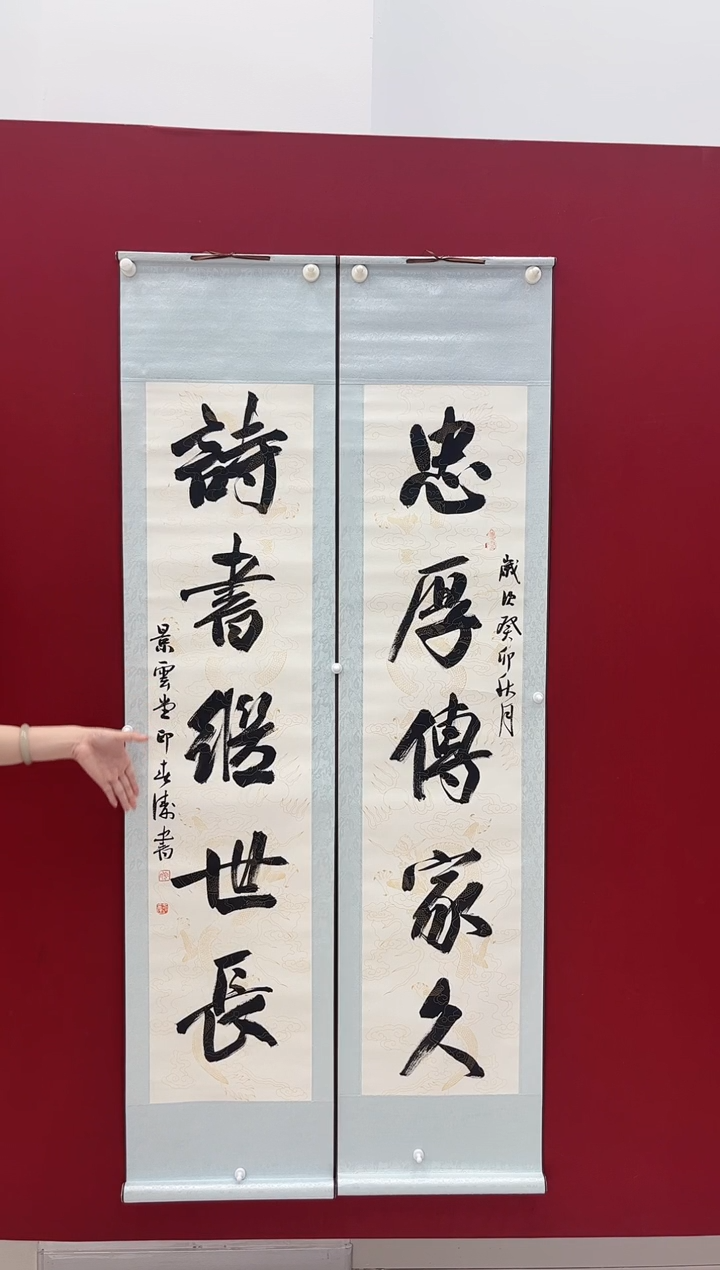 歲次癸卯秋月
忠厚傳家久
詩書繼世長
景雲堂印濤書